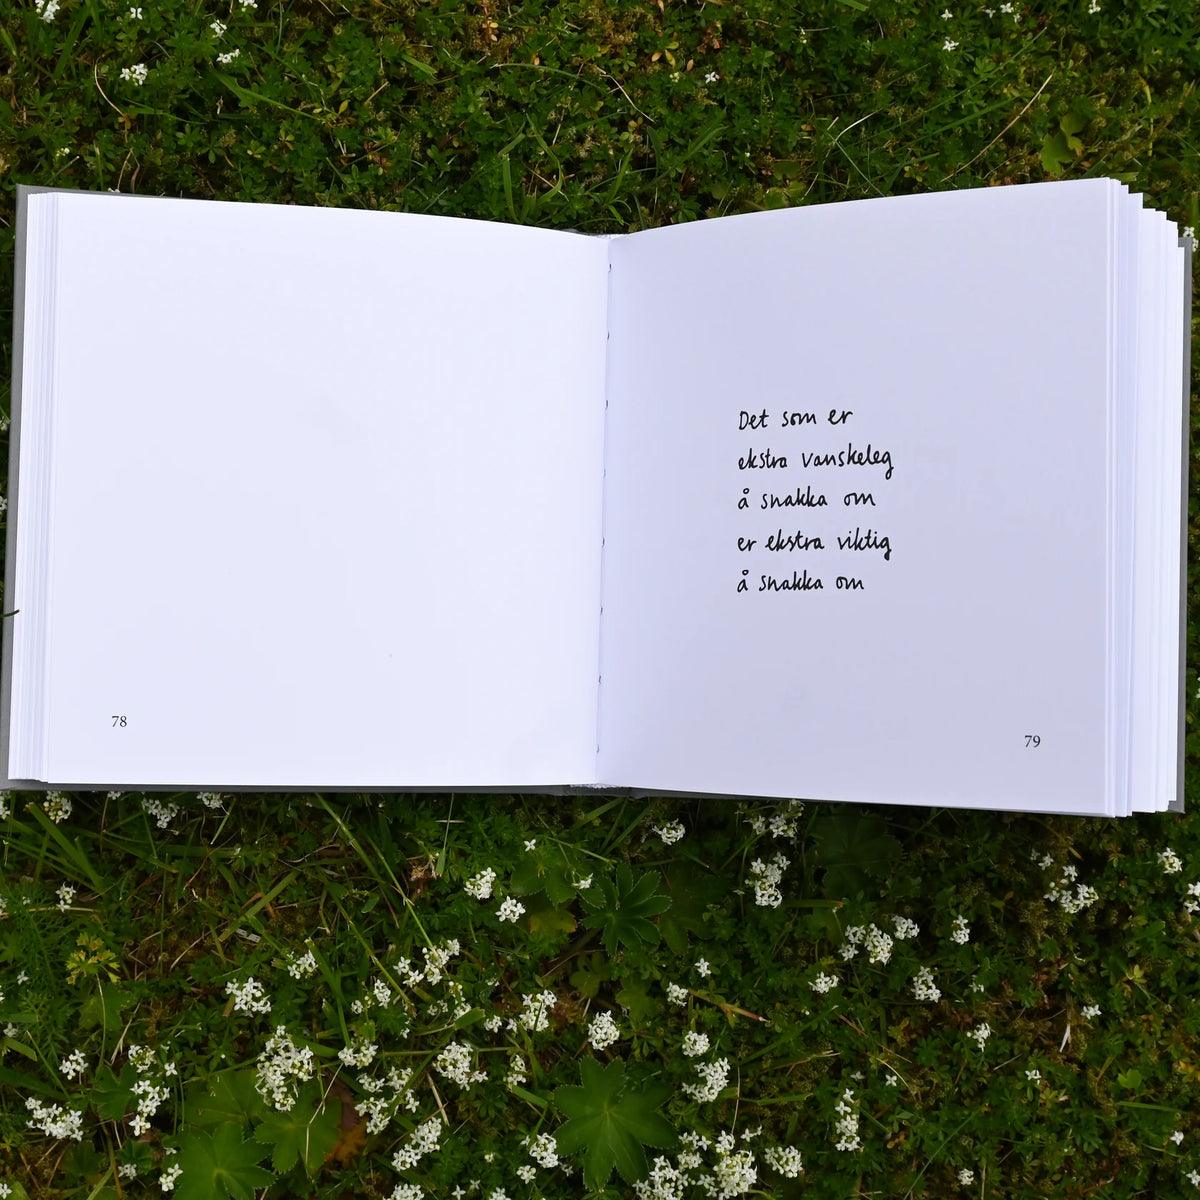 78
Det som er
ekstra vanskeleg
å snakka om
er ekstra viktig
å snakka om
79